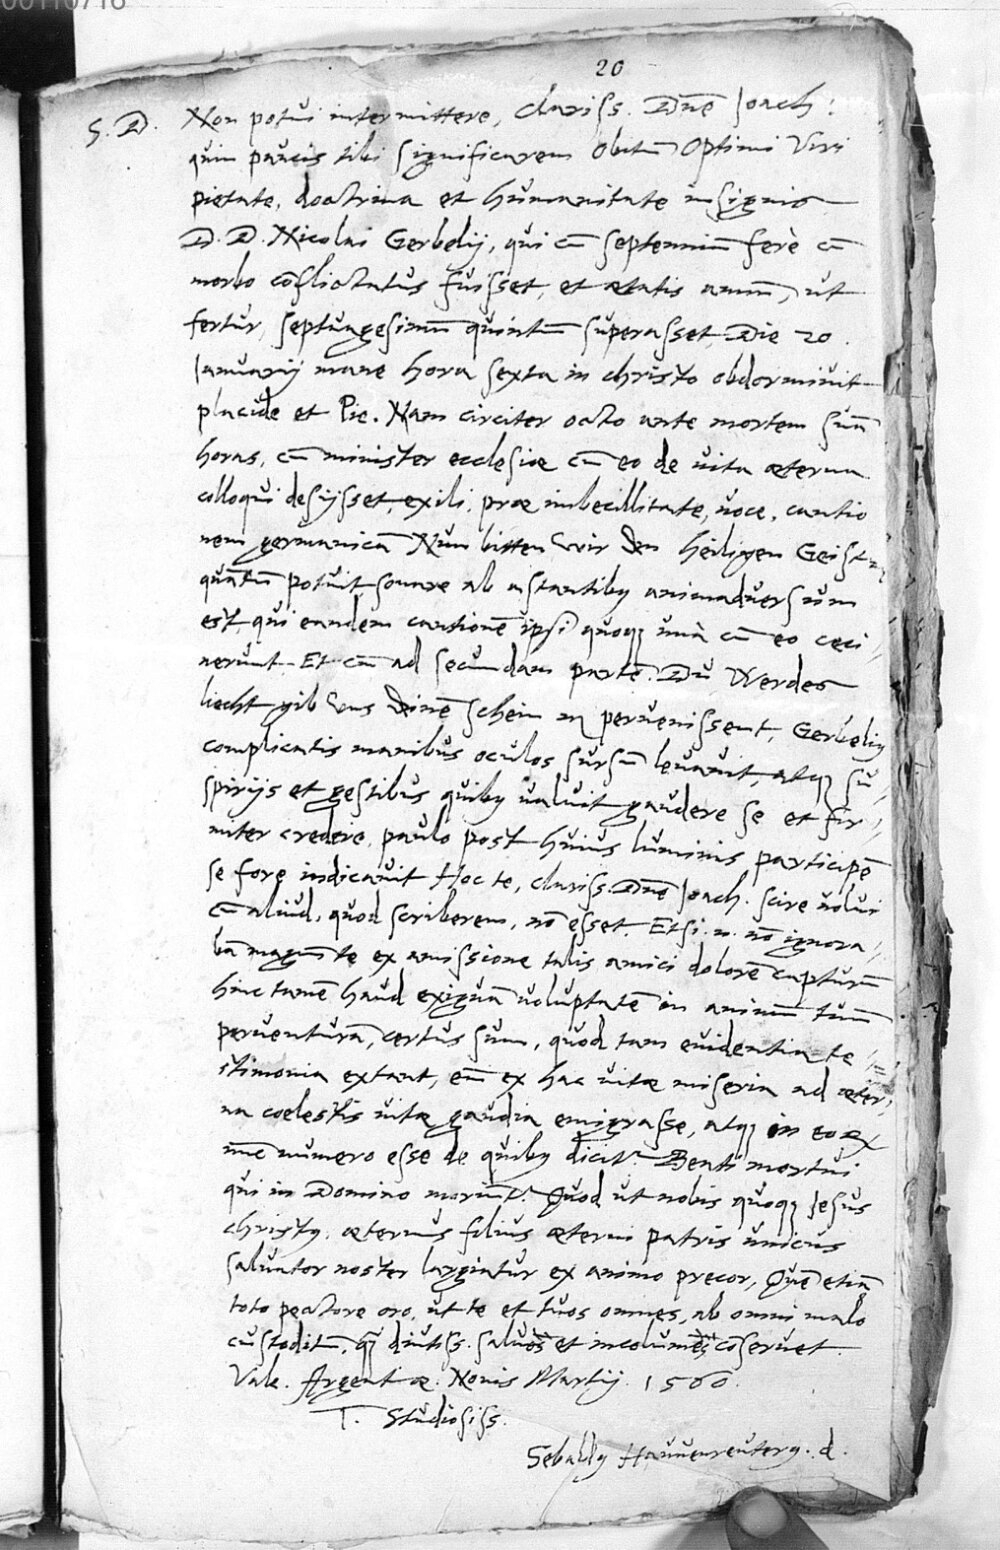 00110716
20
S. D. Non potui intermittere, clariss. Dnē Joach:
quin paucis tibi significarem obitū Optimi Viri
pietate, doctrina et humanitate insignis
D. D. Nicolai Gerbelij, qui cū septennium ferè cū
morbo cōflictatus fuisset, et ætatis annū, ut
fertur, septuagesimū quintū superasset, Die 20.
Januarij mane hora sexta in christo obdormiuit
placide et Pie. Nam circiter octo ante mortem suā
horas, cū minister ecclesiæ cū eo de uita æterna
colloqui desijsset, exili, præ imbecillitate, uoce, cantio
nem germanicā Nun bitten wir den heiligen Geist
quātū potuit sonare ab astantibꝰ animaduersum
est, qui eandem cantionē ipsi quoqꝫ unà cū eo ceci
nerunt. Et cū ad secundam partē. Du Werdes
liecht gib uns deinē schein peruenissent, Gerbeliꝰ
complicatis manibus oculos sursū leuauit, atqꝫ su
spirijs et gestibus quibꝰ ualuit gaudere se et fir
miter credere, paulo post huius luminis participē
se fore indicauit. Hoc te, clariss. Dnē Joach. scire uolui
cū aliud, quod scriberem, nō esset. Etsi .n. nō ignora
bā magnū te ex amissione talis amici dolorē capturū
hinc tamē haud exiguā uoluptatē in animū tuū
peruenturā, certus sum, quod tam euidentia te
stimonia extant, eū ex hac uitæ miseria ad æter
na coelestis uitæ gaudia emigrasse, atqꝫ in eorū
nūc numero esse de quibꝰ dicitꝰ. Beati mortui
qui in Domino moriūtꝰ. Quod ut nobis quoqꝫ Jesus
christꝰ, æternus filius æterni patris unicus
saluator noster largiatur ex animo precor, Quē etiā
toto pectore oro, ut te et tuos omnes, ab omni malo
custoditū, qꝫ diutiss. saluos et incolumes cōseruet.
Vale. Argentoræ. Nonis Martij. 1560.
T. Studiosiss.
Sebaldꝰ Hauuenreuterꝰ. d.